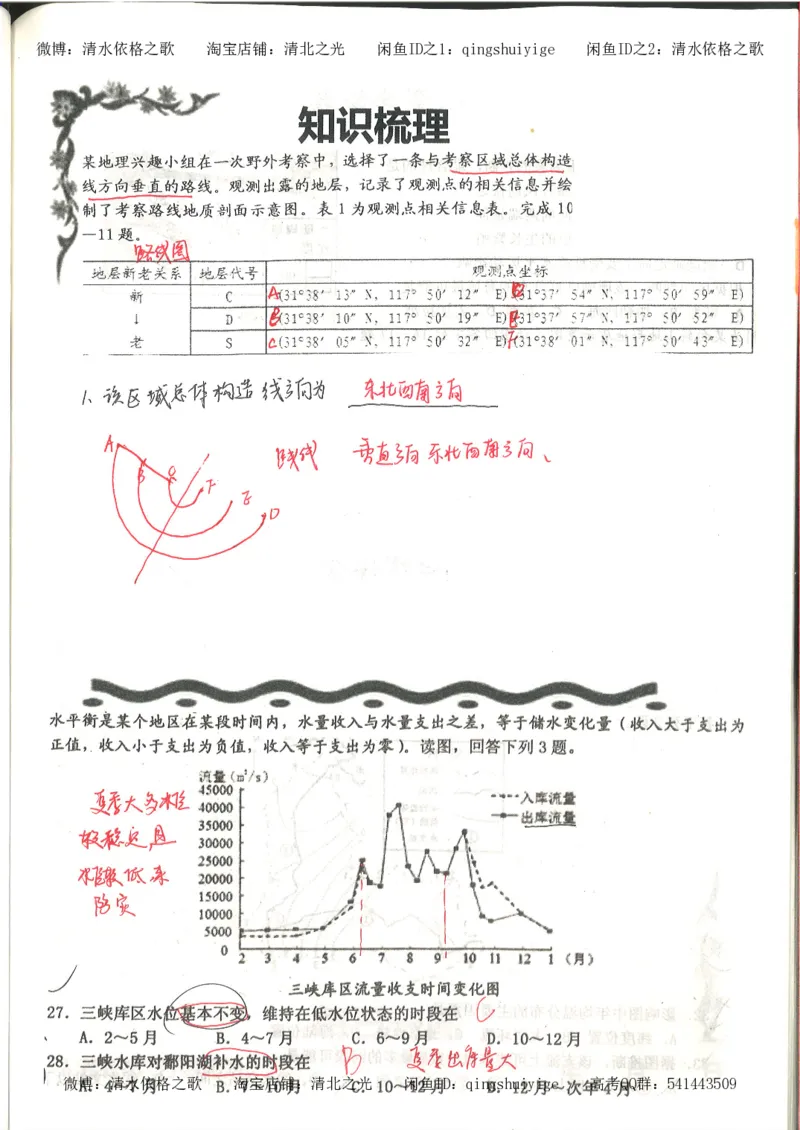 微博：清水依格之歌 淘宝店铺：清北之光 闲鱼ID之1：qingshuiyige 闲鱼ID之2：清水依格之歌
知识梳理
某地理兴趣小组在一次野外考察中，选择了一条与考察区域总体构造
线方向垂直的路线。观测出露的地层，记录了观测点的相关信息并绘
制了考察路线地质剖面示意图。表1为观测点相关信息表。完成10
—11题。
路线图
地层新老关系 地层代号 观测点坐标
新 C A(31°38′ 13″ N，117° 50′ 12″ E) D(31°37′ 54″ N，117° 50′ 59″ E)
↓ D B(31°38′ 10″ N，117° 50′ 19″ E) E(31°37′ 57″ N，117° 50′ 52″ E)
老 S C(31°38′ 05″ N，117° 50′ 32″ E) F(31°38′ 01″ N，117° 50′ 43″ E)
1、该区域总体构造线方向为 东北西南方向
A B C F E D
路线 垂直方向东北西南方向、
水平衡是某个地区在某段时间内，水量收入与水量支出之差，等于储水变化量（收入大于支出为
正值，收入小于支出为负值，收入等于支出为零）。读图，回答下列3题。
流量(m³/s)
45000
40000
35000
30000
25000
20000
15000
10000
5000
0
入库流量
出库流量
2 3 4 5 6 7 8 9 10 11 12 1 (月)
三峡库区流量收支时间变化图
夏季大多水位
较稳定，且
水位最低来
防灾
27．三峡库区水位基本不变，维持在低水位状态的时段在 C
A．2～5月 B．4～7月 C．6～9月 D．10～12月
28．三峡水库对鄱阳湖补水的时段在 B 夏季出库量大
A．4～7月 B．7～10月 C．10～12月 D．12月～次年4月
微博：清水依格之歌 淘宝店铺：清北之光 闲鱼ID：qingshuiyige 高考QQ群：541443509